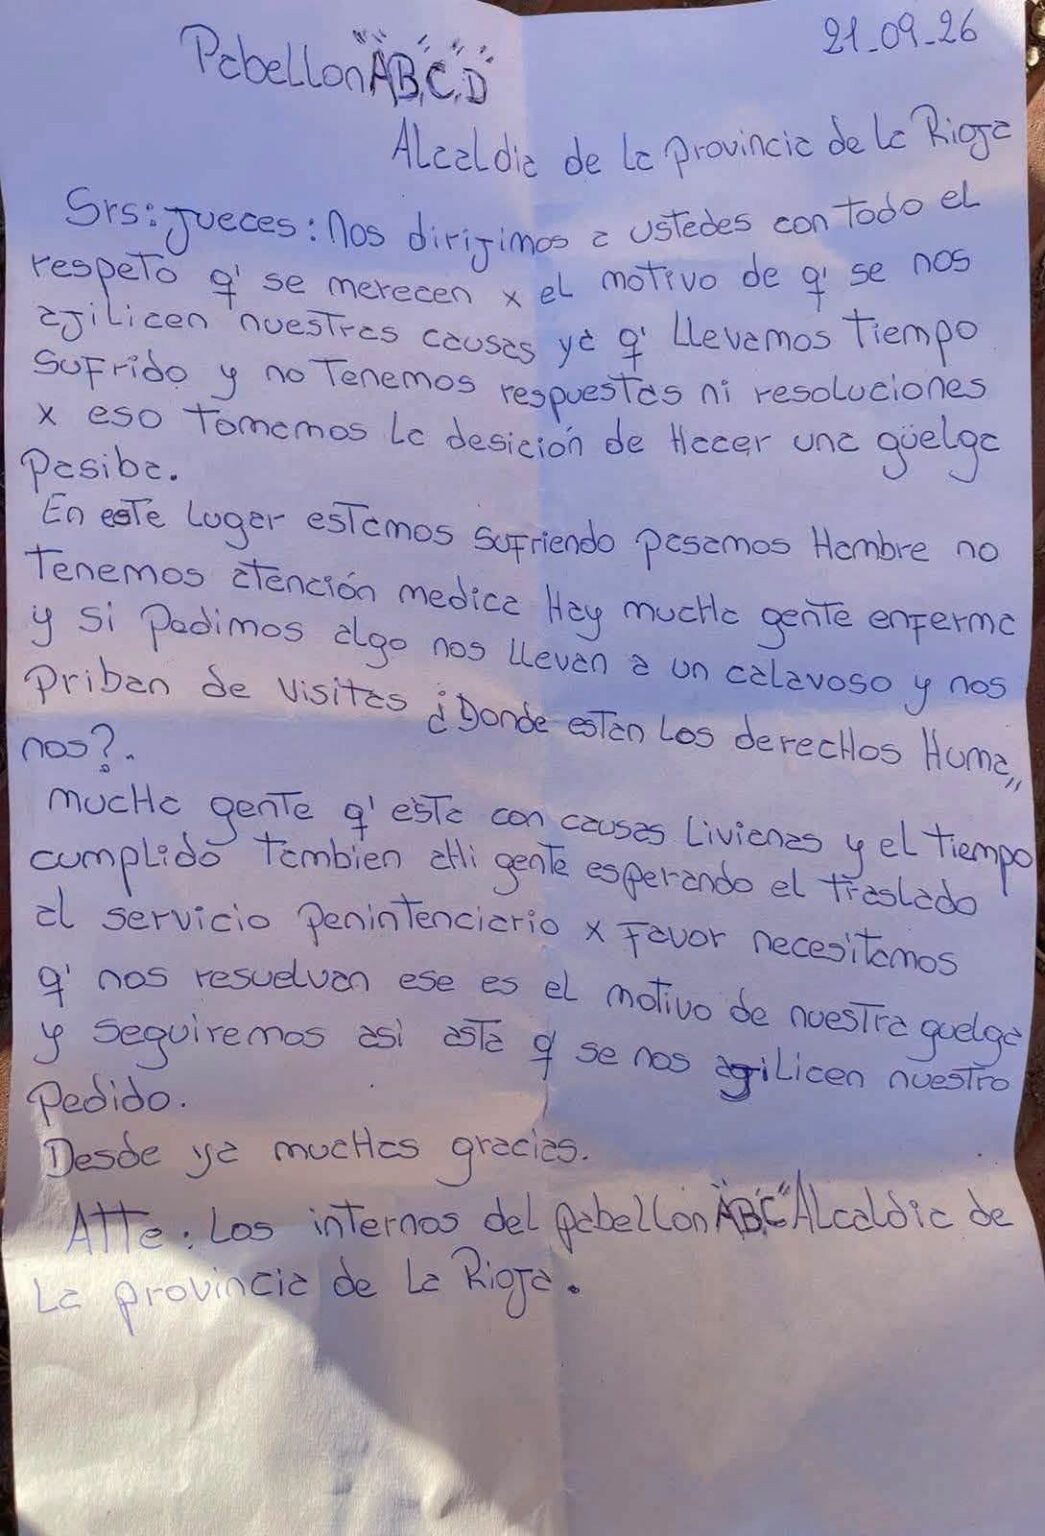 Pabellon "A", "B", "C", "D"
21-09-26
Alcaldia de la provincia de la Rioja
Srs: Jueces: Nos dirijimos a ustedes con todo el
respeto q' se merecen x el motivo de q' se nos
ajilicen nuestras causas ya q' llevamos tiempo
sufrido y no tenemos respuestas ni resoluciones
x eso tomamos la desición de Hacer una güelga
pasiba.
En este lugar estamos sufriendo pasamos Hambre no
tenemos atención medica Hay mucha gente enferma
y si Pedimos algo nos llevan a un calavoso y nos
priban de visitas ¿Donde estan los derechos Huma,,
nos?.
mucha gente q' esta con causas livianas y el tiempo
cumplido tambien aHi gente esperando el traslado
al servicio penintenciario x favor necesitamos
q' nos resuelvan ese es el motivo de nuestra guelga
y seguiremos asi asta q' se nos agilicen nuestro
pedido.
Desde ya muchas gracias.
Atte: Los internos del pabellon "A" "B" "C" Alcaldia de
La provincia de la Rioja.